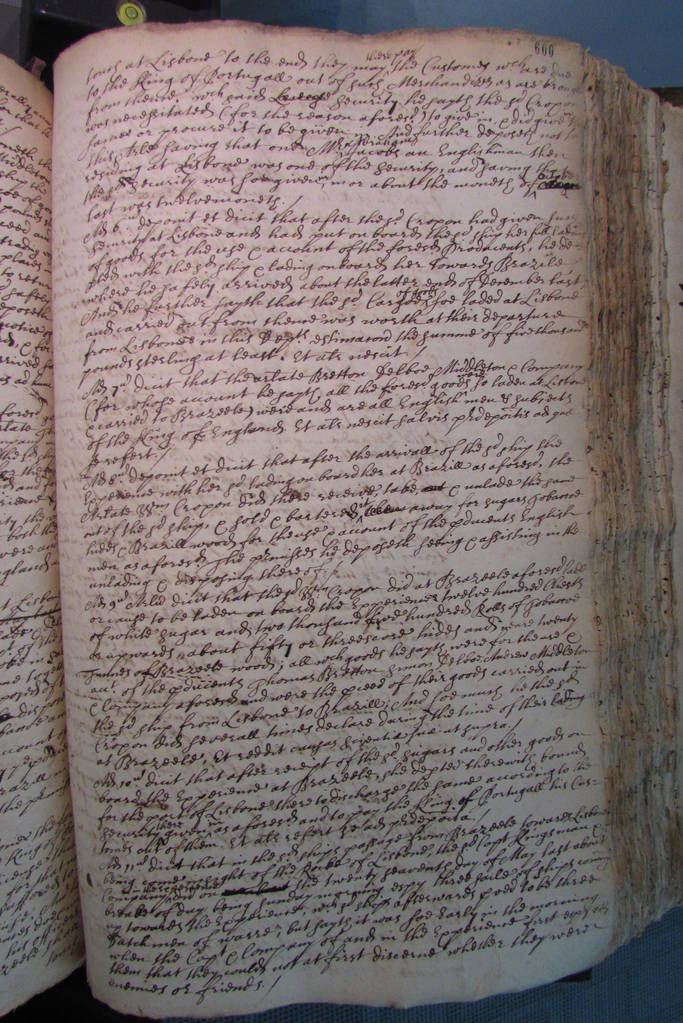 600
touch at Lisbone to the end they may there pay the Customes wch are due
to the King of Portugall out of such Merchandizes as are brought
from thence, wch said Security hee sayth the sd Cropon
was necessitated (for the reason aforesd) to give in, & did give the
same or procure it to be given, And further deposeth not
this rlt saving that one Mr Jacobs an Englishman then
resident at Lisbone was one of the Security, and saving
the sd Security was soe given in or about the moneth of October
last was twelve moneth./
Ad 6um deponit et dicit that after the sd Cropon had given such
Security at Lisbone and had put on board the sd ship her full lading
of goods for the use & account of the foresd Producents, he de=
pted with the sd ship & lading on board her towards Brazile
where he safely arrived about the latter end of December last
And he further sayth that the sd Cargo soe laded at Lisbone
and carried out from thence was worth at their departure
from Lisbone in this Depts estimacon the summe of five thousand
pounds sterling at least. Et alr nescit./
Ad 7um dicit that the arlate Bretton Delboe Middleton & Company
(for whose account he sayth all the foresd goods were so laden at Lisbone
& carried to Brazeele) were and are all English men & subjects
of the King of England Et alr nescit salvis prdepositis ad que
se refert./
Ad 8um deponit et dicit that after the arrivall of the sd ship the
Experience with her sd lading on board her at Brazill as aforesd, the
Arlate Wm Cropon did there receive, take, & unlade the same
out of the sd ship, & sold & bartered it away for sugars Tobaccoe
hides & Brazill wood for the use & account of the pducents English
men as aforesd. The premisses he deposeth seeing & assisting in the
unlading & disposing thereof./
Ad 9um Arlum dicit that the sd Wm Cropon did at Brazeele aforesd lade
or cause to be laden on board the Experience twelve hundred Chests
of white sugar and two thousand five hundred Rolls of Tobaccoe
or upwards, about fifty or threescore hides and neare twenty
of Brazeele wood; all wch goods he sayth were for the use &
acct. of the pducents Thomas Bretton Simon Delboe, Andrew Middleton
& Company aforesd and were the pceed of their goods carried out in
the sd ship from Lisbone to Brazill; And soe much he the sd
Cropon did severall times declare during the time of their lading
at Brazeele, Et reddit causas scientiae sue ut supra./
Ad 10um dicit that after receipt of the sd Sugars and other goods on
board the Experience at Brazeele, she depted therewith bound
for the port of Lisbone there to discharge the same according to the
Security given as aforesd and to pay the King of Portugall his Cus=
tomes out of them. Et alr refert se ad prdeposita./
Ad 11um dicit that in the sd ships passage from Brazeele towards Lisbone
being in sight of the Rocke of Lisbone, the sd Capt Kingsman &
Company in the Experience on the twenty seaventh day of May last about
breake of day being Sunday morning espy three saile of ships coming
up towards the Experience, wch sd ships afterwards pved to be three
Dutch men of warre, but sayth it was soe early in the morning
when the Capt & Company on board in the Experience first espied
them that they could not at first discerne whether they were
enemies or friends./